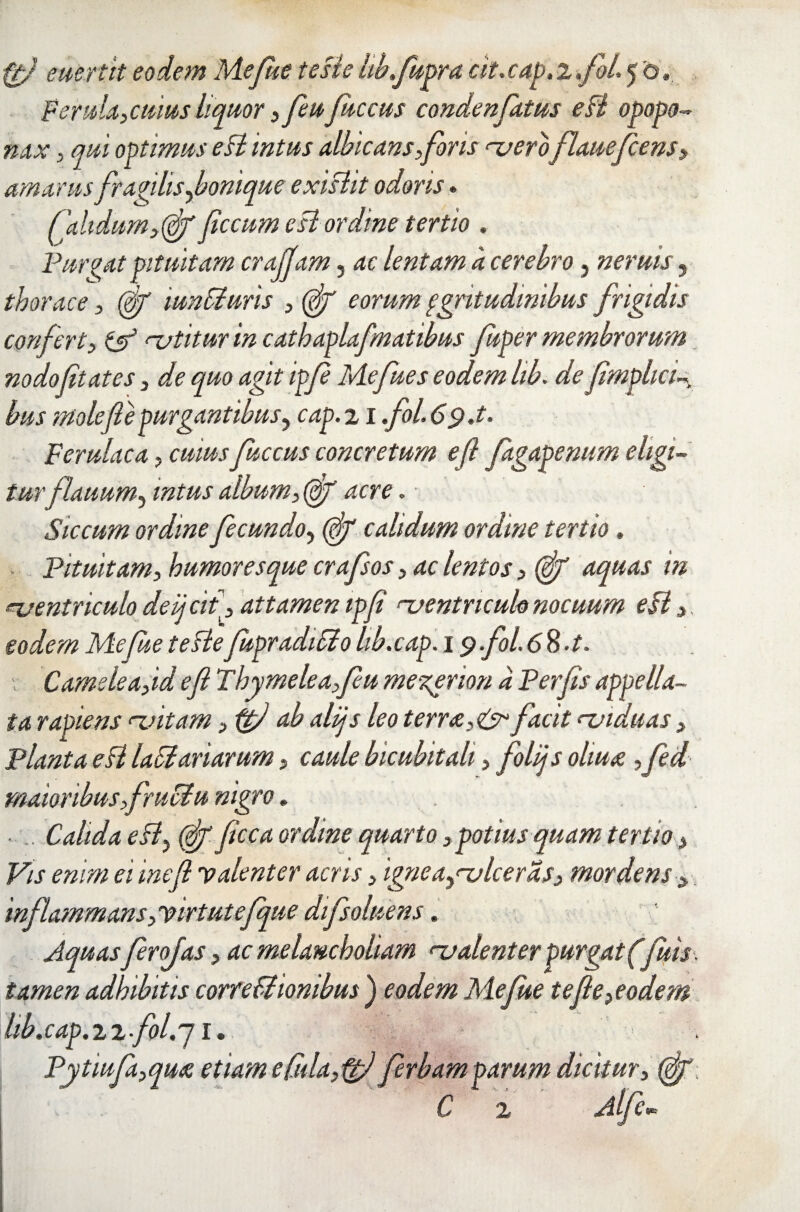 & euertit eodem Mesue teste lib.supra cit.cap.2.fol.50.
Ferula,cuius liquor, seu succus condensatus est opopo-
nax, qui optimus est intus albicans,foris vero flauescens,
amarus fragilis,bonique existit odoris.
Calidum,& siccum est ordine tertio.
Purgat pituitam crassam, ac lentam à cerebro, neruis,
thorace, & iuncturis, & eorum ęgritudinibus frigidis
confert, & vtitur in cathaplasmatibus super membrorum
nodositates, de quo agit ipse Mesues eodem lib. de simplici-
bus molestè purgantibus, cap.21.fol.69.t.
Ferulaca, cuius succus concretum est sagapenum eligi-
tur flauum, intus album,& acre.
Siccum ordine secundo, & calidum ordine tertio.
Pituitam, humoresque crassos, ac lentos, & aquas in
ventriculo deijcit, attamen ipsi ventriculo nocuum est,
eodem Mesue teste supradicto lib.cap.19.fol.68.t.
Camelea,id est Thymelea,seu mezerion à Persis appella-
ta rapiens vitam, & ab alijs leo terræ,& facit viduas,
Planta est lactariarum, caule bicubitali, folijs oliuæ,sed
maioribus,fructu nigro.
Calida est, & sicca ordine quarto, potius quam tertio,
Vis enim ei inest valenter acris, ignea,vlcerās, mordens,
inflammans,virtutesque dissoluens.
Aquas serosas, ac melancholiam valenter purgat (suis
tamen adhibitis correctionibus) eodem Mesue teste,eodem
lib.cap.22.fol.71.
Pytiusa,quæ etiam esula,& serbam parum dicitur, &
C 2 Alse-